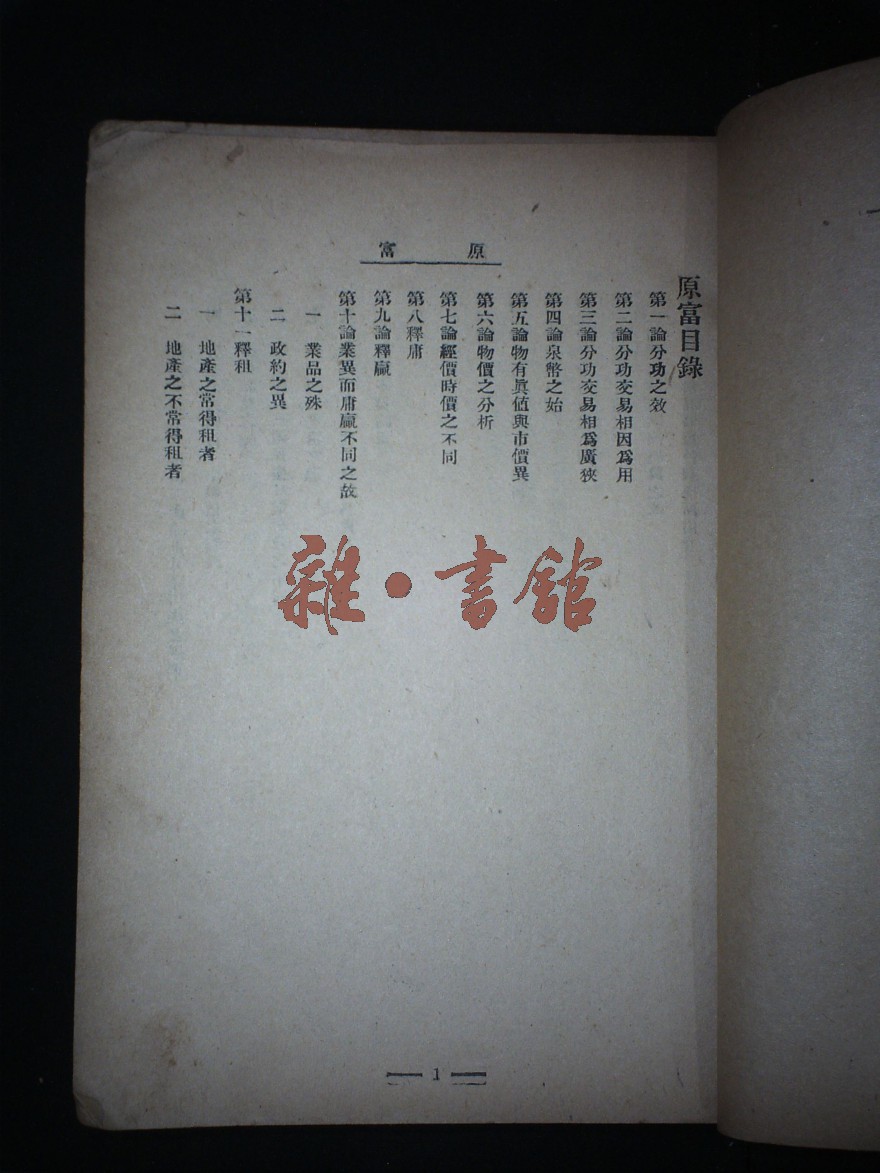 原富
原富目錄
第一論分功之效
第二論分功交易相因爲用
第三論分功交易相爲廣狹
第四論泉幣之始
第五論物有眞值與市價異
第六論物價之分析
第七論經價時價之不同
第八釋庸
第九論釋贏
第十論業異而庸贏不同之故
一 業品之殊
二 政約之異
第十一釋租
一 地產之常得租者
二 地產之不常得租者
雜·書館
1